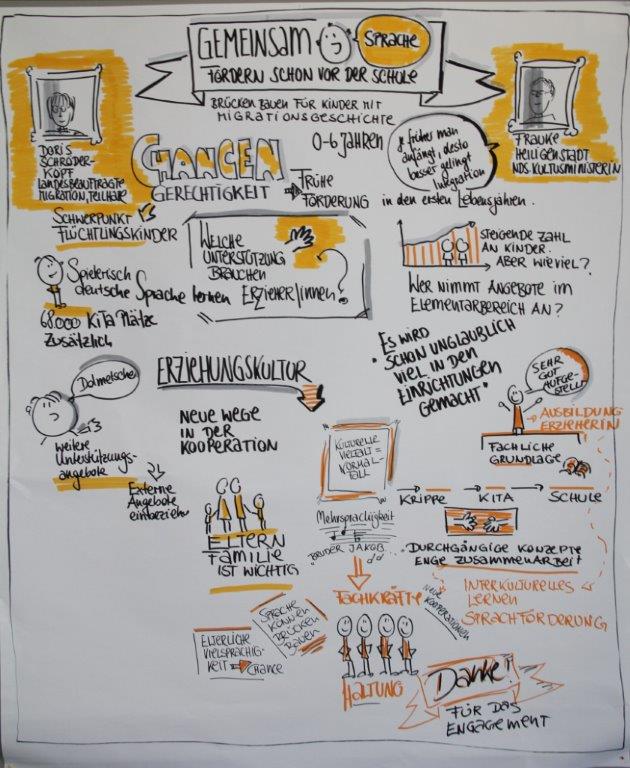 GEMEINSAM
SPRACHE
FÖRDERN SCHON VOR DER SCHULE
BRÜCKEN BAUEN FÜR KINDER MIT
MIGRATIONSGESCHICHTE
DORIS
SCHRÖDER-
KOPF
LANDESBEAUFTRAGTE
MIGRATION, TEILHABE
FRAUKE
HEILIGENSTADT
NDS. KULTUSMINISTERIN
CHANCEN
GERECHTIGKEIT
0-6 JAHREN
FRÜHE
FÖRDERUNG
Je früher man
anfängt, desto
besser gelingt
Integration
in den ersten Lebensjahren.
SCHWERPUNKT
FLÜCHTLINGSKINDER
Spielerisch
deutsche Sprache lernen
68.000 KiTa Plätze
Zusätzlich
WELCHE
UNTERSTÜTZUNG
BRAUCHEN
ERZIEHER/innen?
STEIGENDE ZAHL
AN KINDER.
ABER WIEVIEL?
WER NIMMT ANGEBOTE IM
ELEMENTARBEREICH AN?
ES WIRD
"SCHON UNGLAUBLICH
VIEL IN DEN
EINRICHTUNGEN
GEMACHT"
Dolmetscher
weitere
Unterstützungs-
angebote
Externe
Angebote
einbeziehen
ERZIEHUNGSKULTUR
NEUE WEGE
IN DER
KOOPERATION
ELTERN
FAMILIE
IST WICHTIG
KULTURELLE
VIELFALT =
NORMAL-
FALL
Mehrsprachigkeit
"BRUDER JAKOB...
SEHR
GUT
AUFGE-
STELLT
AUSBILDUNG
ERZIEHERIN
FACHLICHE
GRUNDLAGE
KRIPPE
KITA
SCHULE
DURCHGÄNGIGE KONZEPTE
ENGE ZUSAMMENARBEIT
INTERKULTURELLES
LERNEN
SPRACHFÖRDERUNG
FACHKRÄFTE
NEUE
KOOPERATIONEN
HALTUNG
SPRACHE
KÖNNEN
BRÜCKEN
BAUEN
ELTERLICHE
VIELSPRACHIG-
KEIT
CHANCE
Danke!
FÜR DAS
ENGAGEMENT